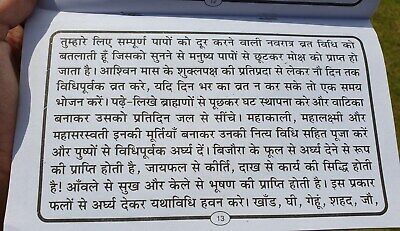 तुम्हारे लिए सम्पूर्ण पापों को दूर करने वाली नवरात्र व्रत विधि को
बतलाती हूँ जिसको सुनने से मनुष्य पापों से छूटकर मोक्ष को प्राप्त हो
जाता है। आश्विन मास के शुक्लपक्ष की प्रतिप्रदा से लेकर नौ दिन तक
विधिपूर्वक व्रत करे, यदि दिन भर का व्रत न कर सके तो एक समय
भोजन करें। पढ़े-लिखे ब्राह्मणों से पूछकर घट स्थापना करे और वाटिका
बनाकर उसको प्रतिदिन जल से सींचे। महाकाली, महालक्ष्मी और
महासरस्वती इनकी मूर्तियाँ बनाकर उनकी नित्य विधि सहित पूजा करें
और पुष्पों से विधिपूर्वक अर्घ्य दें। बिजौरा के फूल से अर्घ्य देने से रूप
की प्राप्ति होती है, जायफल से कीर्ति, दाख से कार्य की सिद्धि होती
है! आँवले से सुख और केले से भूषण की प्राप्ति होती है। इस प्रकार
फलों से अर्घ्य देकर यथाविधि हवन करे। खाँड, घी, गेहूं, शहद, जौ,
13